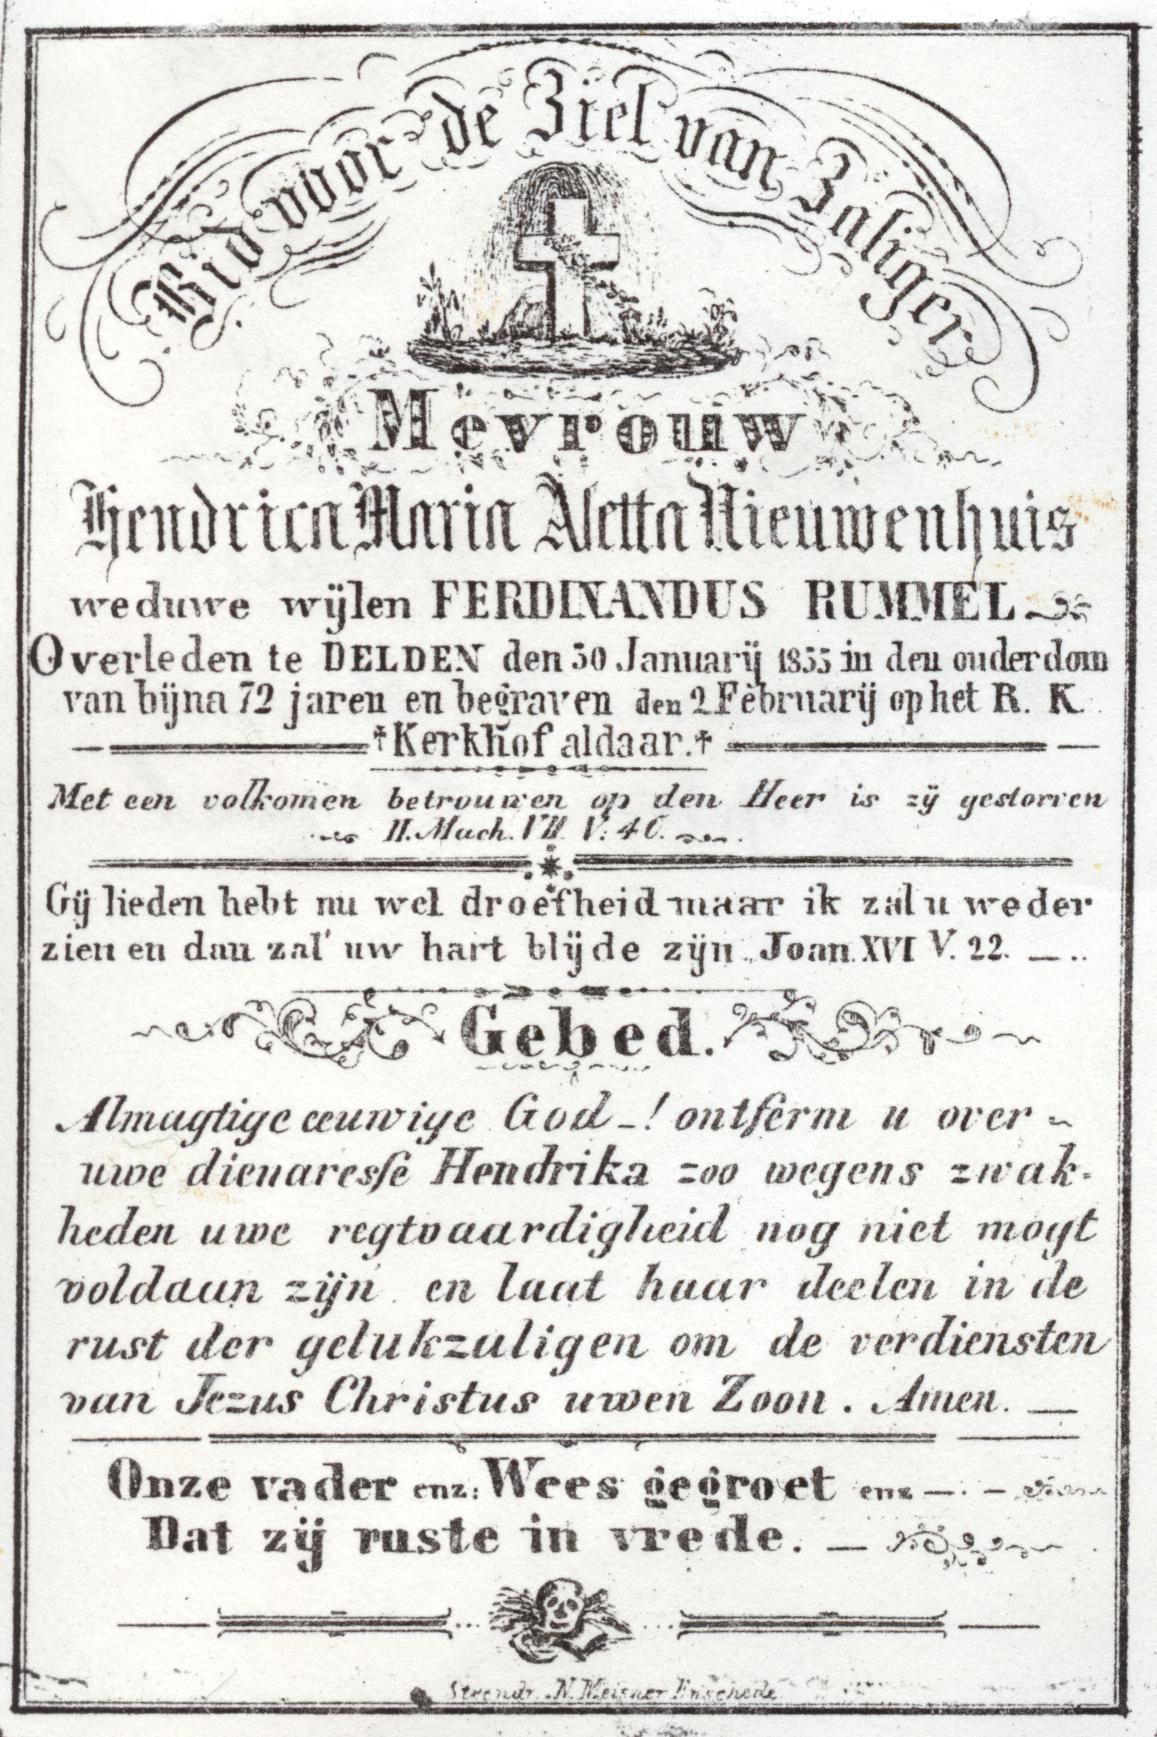 Bid voor de Ziel van Zaliger
Mevrouw
Hendrica Maria Aletta Nieuwenhuis
weduwe wijlen FERDINANDUS RUMMEL
Overleden te DELDEN den 30 Januarij 1855 in den ouderdom
van bijna 72 jaren en begraven den 2 Februarij op het R. K.
†Kerkhof aldaar.†
Met een volkomen betrouwen op den Heer is zÿ gestorven
II. Mach. VII V: 40.
Gij lieden hebt nu wel droefheid maar ik zal u weder
zien en dan zal uw hart blijde zijn. Joan. XVI V. 22.
Gebed.
Almagtige eeuwige God_! ontferm u over
uwe dienaresse Hendrika zoo wegens zwak-
heden uwe regtvaardigheid nog niet mogt
voldaan zijn en laat haar deelen in de
rust der gelukzaligen om de verdiensten
van Jezus Christus uwen Zoon. Amen.
Onze vader enz: Wees gegroet enz
Dat zij ruste in vrede.
Steendr. N. Meisner Enschede